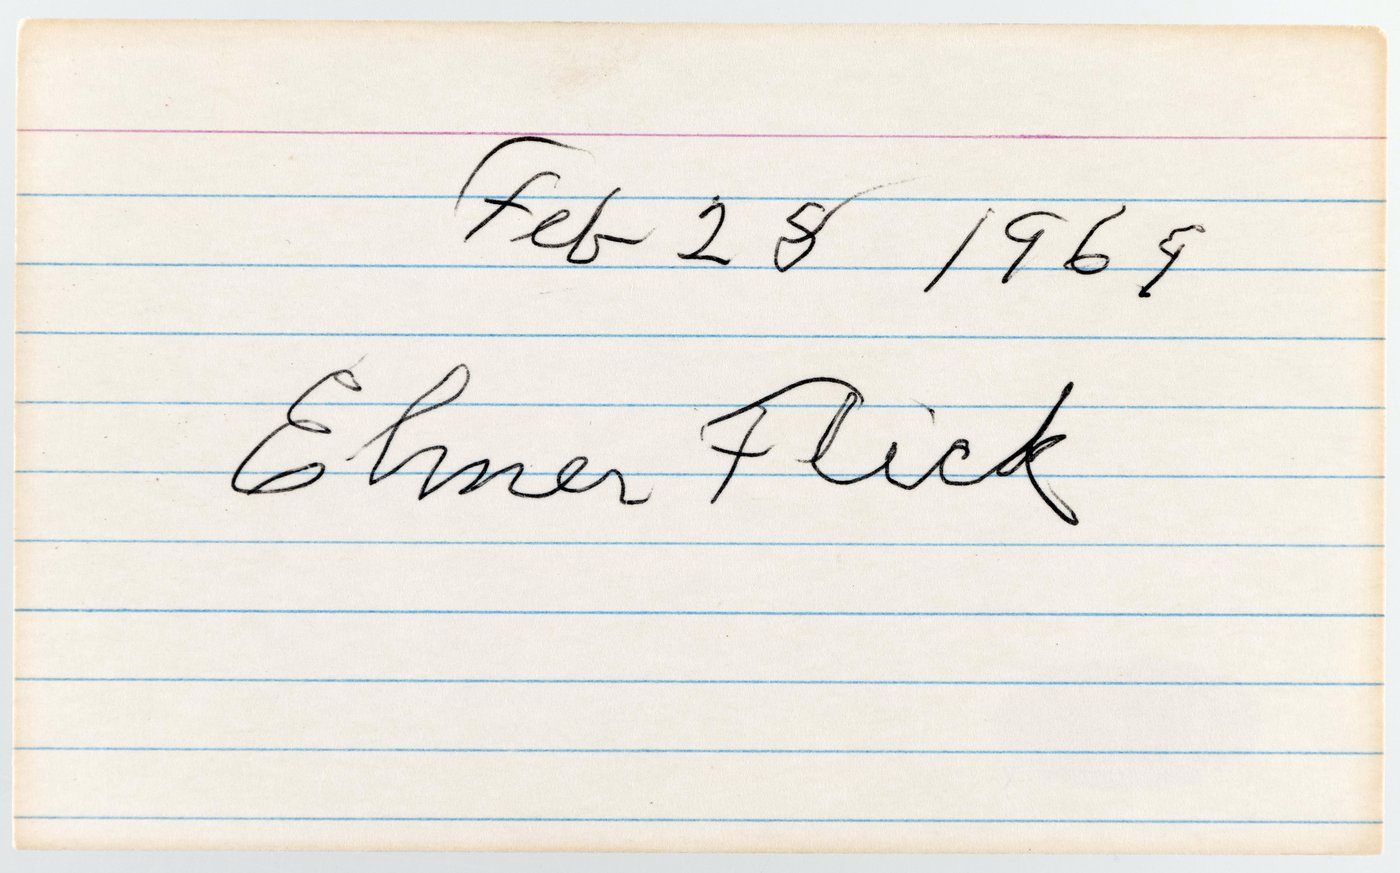 Feb 28 1969
Elmer Flick